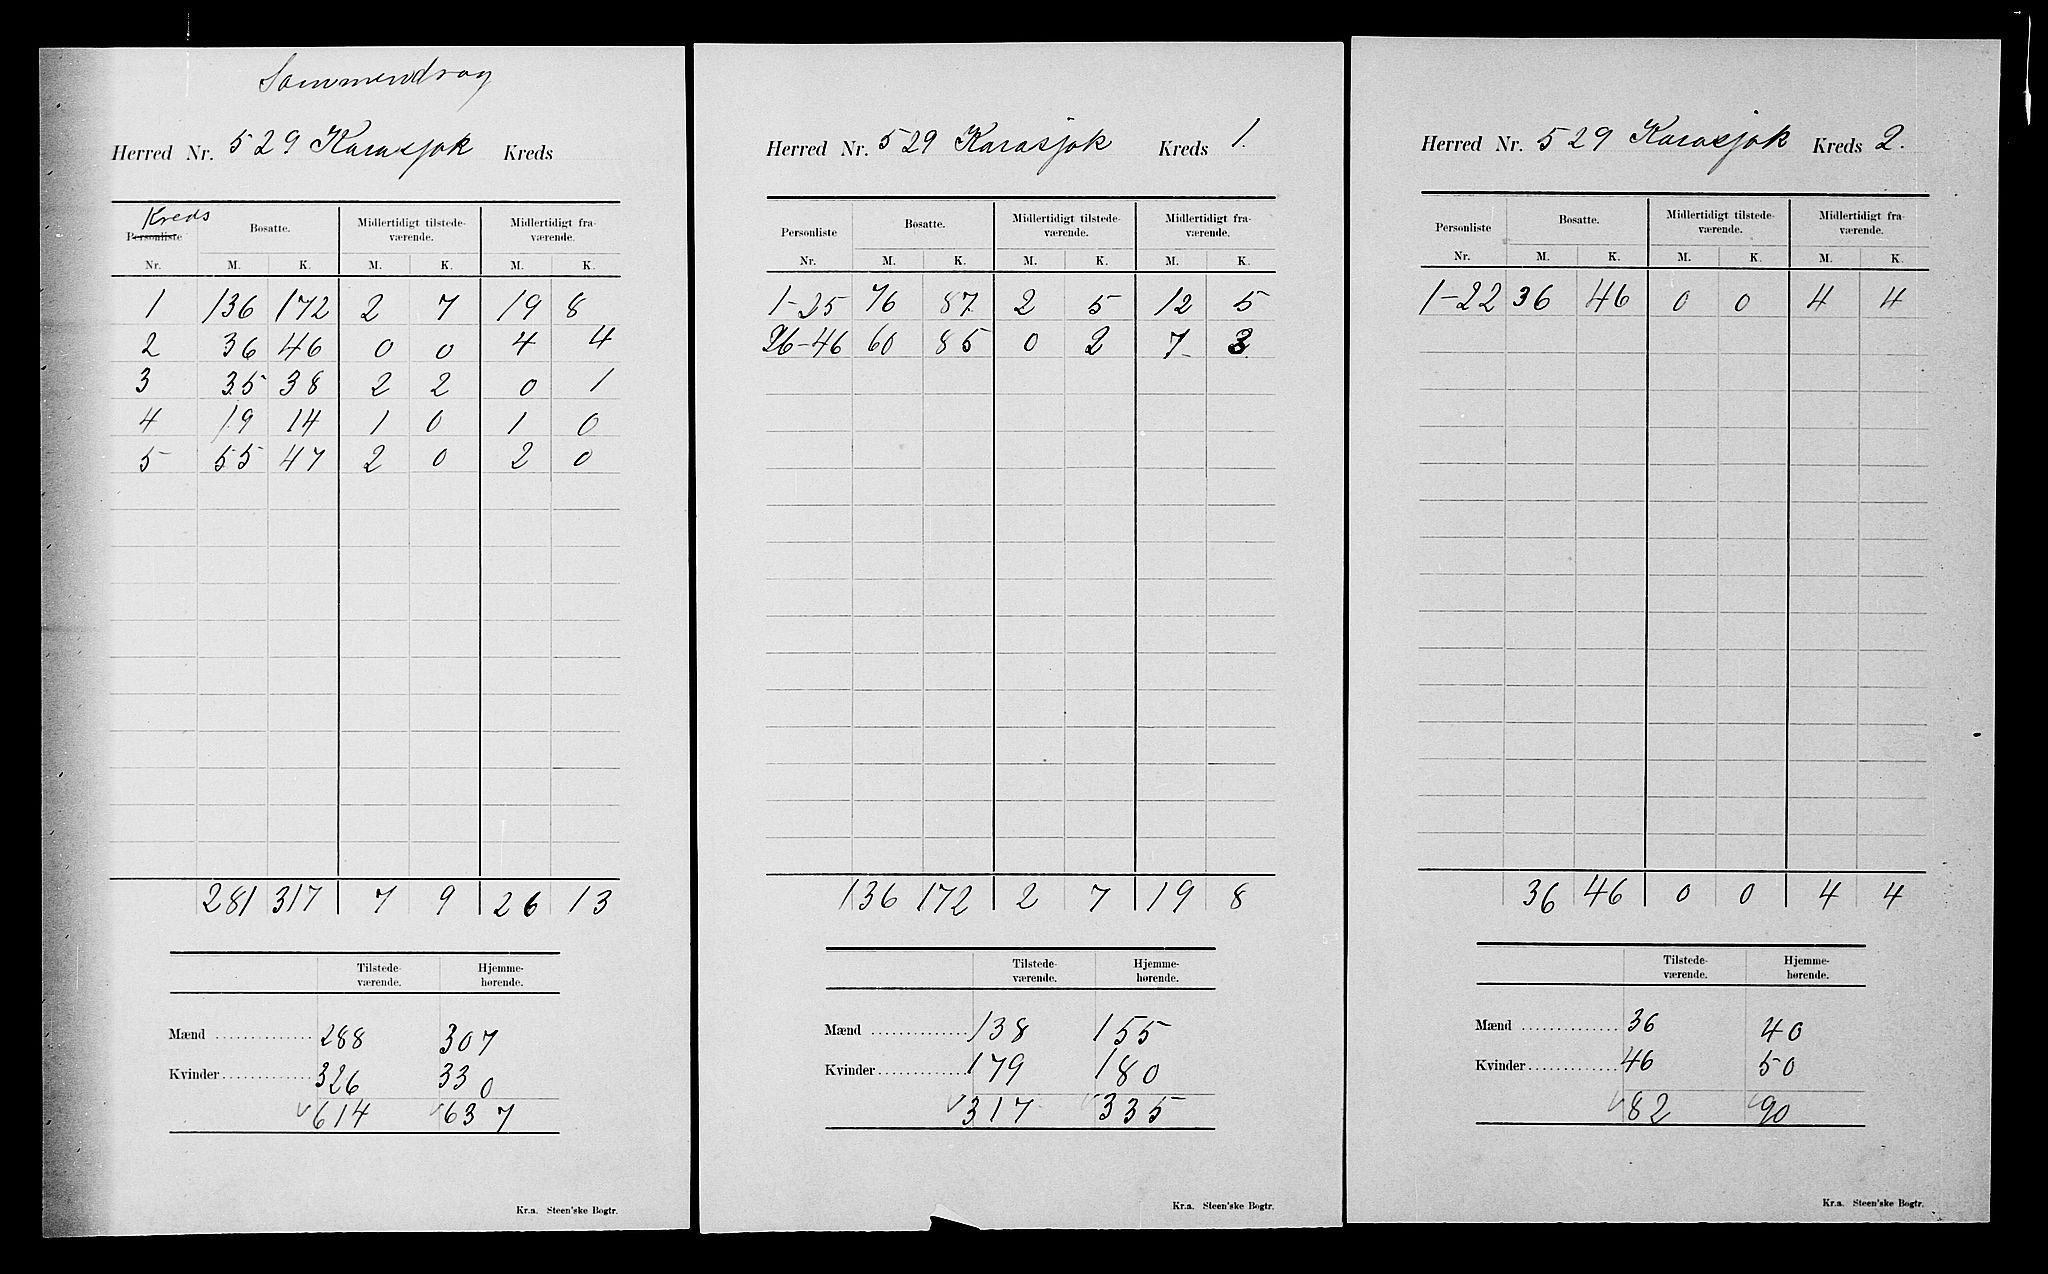 Sammendrag
Herred Nr. 529 Karasjok Kreds
Kreds
Personliste Bosatte. Midlertidigt tilstede-værende. Midlertidigt fra-værende.
Nr. M. K. M. K. M. K.
1 136 172 2 7 19 8
2 36 46 0 0 4 4
3 35 38 2 2 0 1
4 19 14 1 0 1 0
5 55 47 2 0 2 0
281 317 7 9 26 13
Tilstede-værende. Hjemme-hørende.
Mænd .............. 288 307
Kvinder ............. 326 330
614 637
Kr.a. Steen'ske Bogtr.
Herred Nr. 529 Karasjok Kreds 1.
Personliste Bosatte. Midlertidigt tilstede-værende. Midlertidigt fra-værende.
Nr. M. K. M. K. M. K.
1-25 76 87 2 5 12 5
26-46 60 85 0 2 7 3
136 172 2 7 19 8
Tilstede-værende. Hjemme-hørende.
Mænd .............. 138 155
Kvinder ............. 179 180
317 335
Kr.a. Steen'ske Bogtr.
Herred Nr. 529 Karasjok Kreds 2.
Personliste Bosatte. Midlertidigt tilstede-værende. Midlertidigt fra-værende.
Nr. M. K. M. K. M. K.
1-22 36 46 0 0 4 4
36 46 0 0 4 4
Tilstede-værende. Hjemme-hørende.
Mænd .............. 36 40
Kvinder ............. 46 50
82 90
Kr.a. Steen'ske Bogtr.